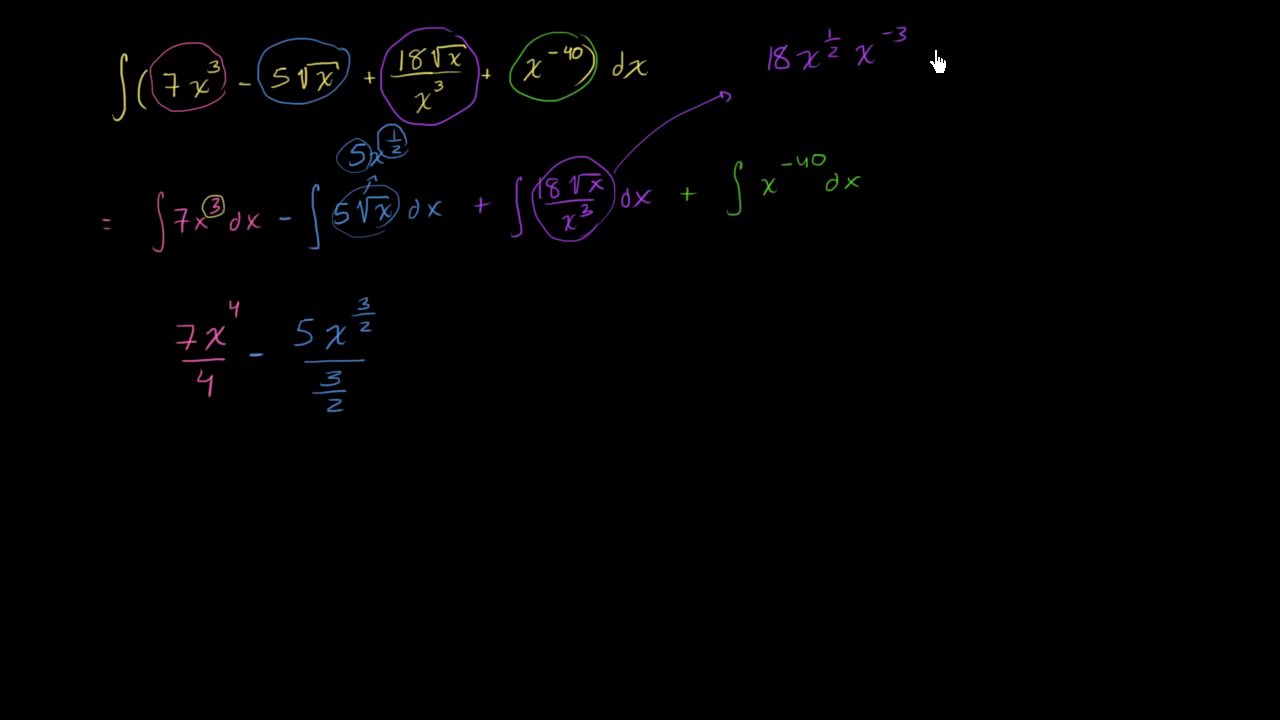 ∫(7x³ - 5√x + 18√x/x³ + x⁻⁴⁰) dx
18 x^(1/2) x⁻³
5x^(1/2)
= ∫7x³ dx - ∫5√x dx + ∫18√x/x³ dx + ∫x⁻⁴⁰ dx
7x⁴/4 - 5x^(3/2)/(3/2)